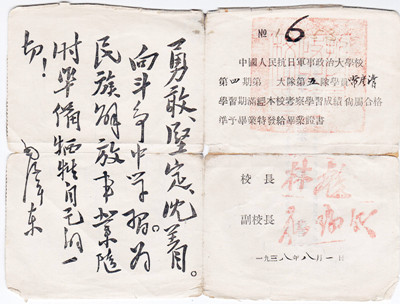 勇敢、堅定、沈着。
向斗爭中学習。为
民族解放事業随
时准備牺牲自己的一
切！
毛泽东
№ 6
中國人民抗日軍事政治大學校
第四期第 大隊第五隊學員
學習期滿經本校考察學習成績尙屬合格
準予畢業特發給畢業證書
校長 林彪
副校長 羅瑞卿
一九三八年八月一日